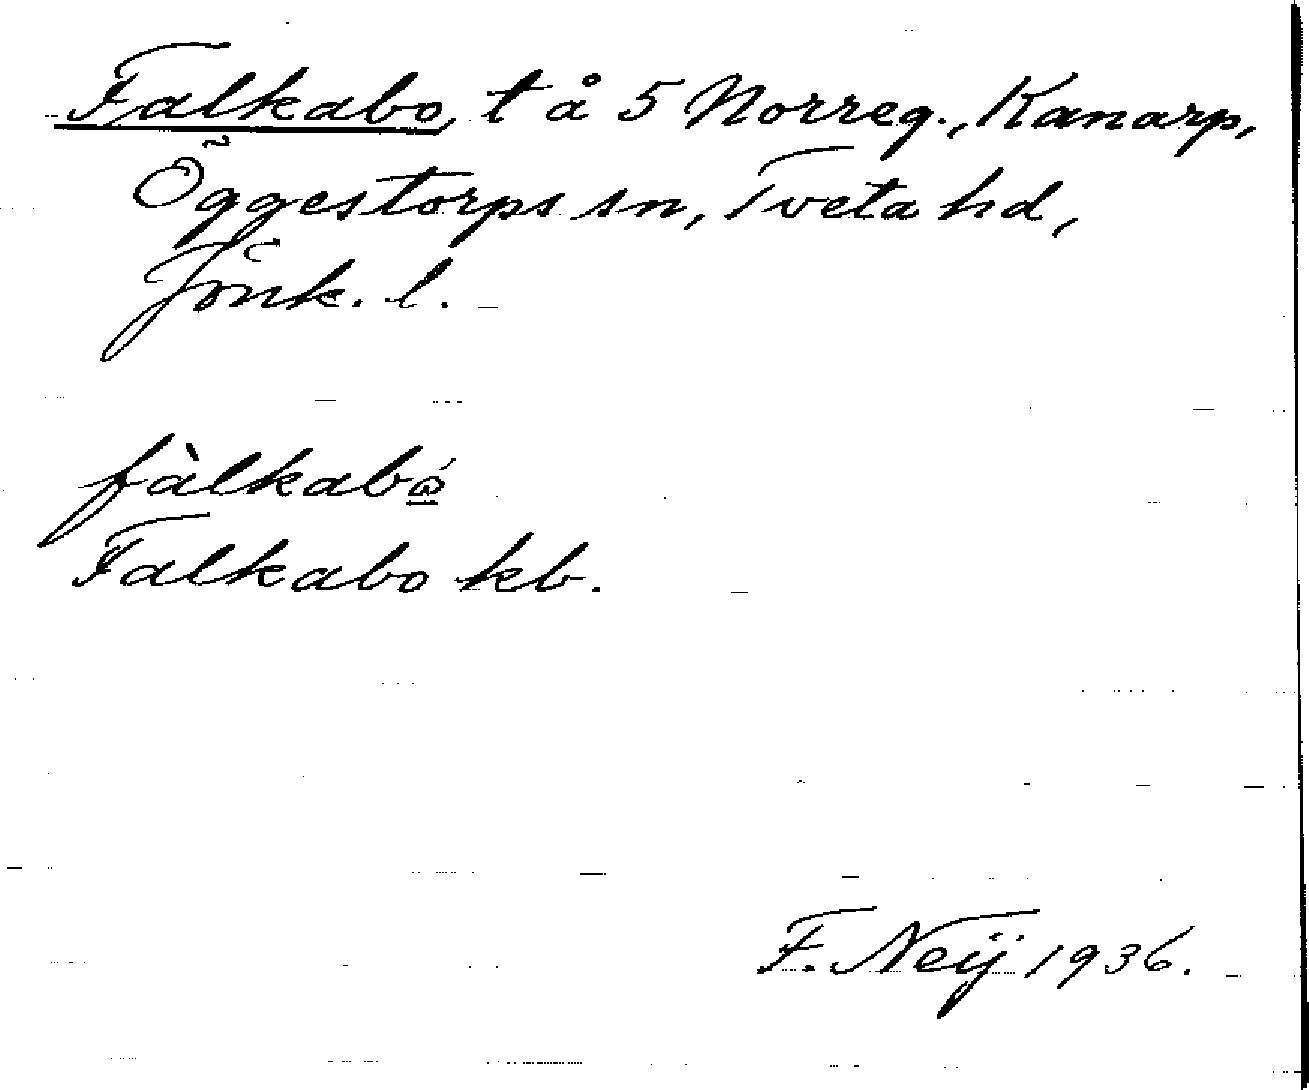 Falkabo, t å 5 Norreg., Kanarp,
Öggestorps sn, Tveta hd,
Jönk. l.
fàlkabώ̲
Falkabo kb.
F. Neij 1936.